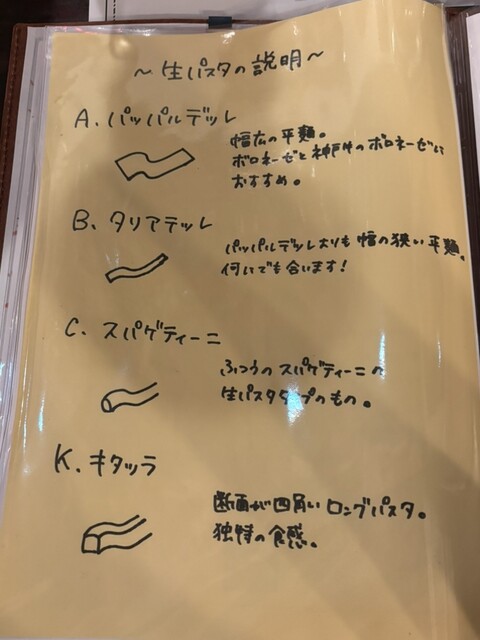 ～生パスタの説明～
A. パッパルデッレ
幅広の平麺。
ボロネーゼと神戸牛のボロネーゼに
おすすめ。
B. タリアテッレ
パッパルデッレよりも幅の狭い平麺。
何にでも合います!
C. スパゲティーニ
ふつうのスパゲティーニの
生パスタタイプのもの。
K. キタッラ
断面が四角いロングパスタ。
独特の食感。